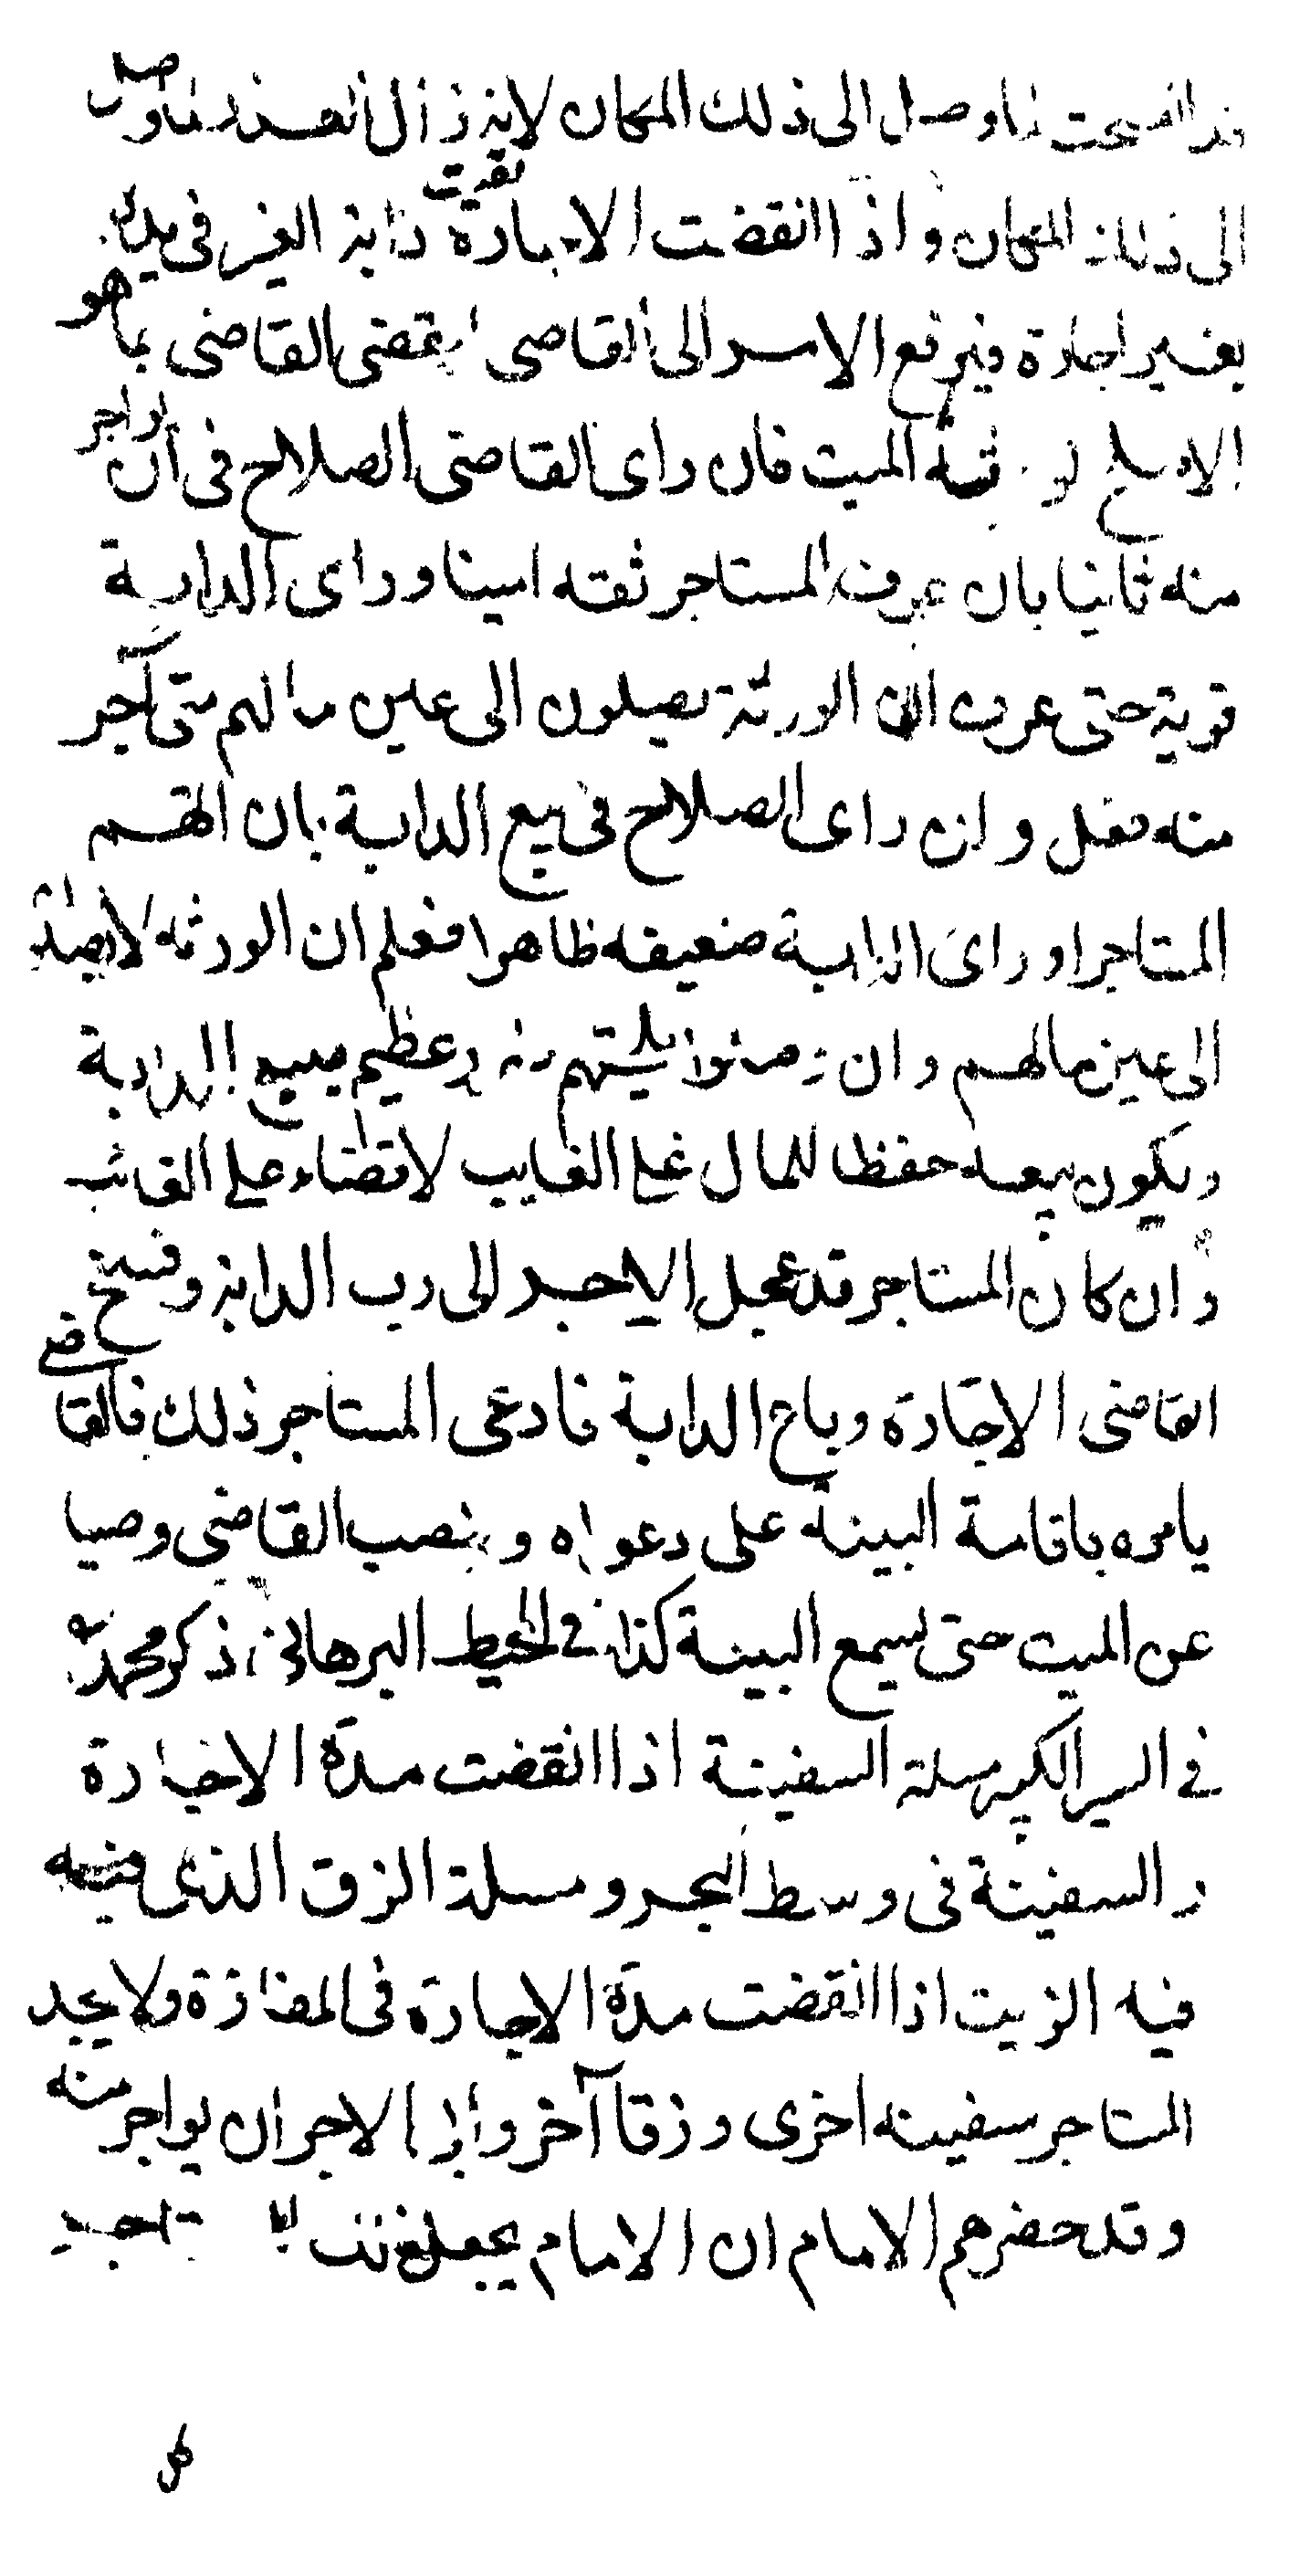 قد انفسخت فما وصل الى ذلك المكان لانه زال العذر فما وصل
الى ذلك المكان واذا انقضت الاجارة بقيت دابة الغير في يده
بغير اجارة فيرفع الامر الى القاضى ليقضى القاضى بما هو
الاصلح لورثة الميت فان راى القاضى الصلاح فى ان يواجر
منه ثانيا بان عرف المستاجر ثقه امينا وراى الدابة
قوية حتى عرف ان الورثة يصلون الى عين مالهم متى آجر
منه فعل وان راى الصلاح فى بيع الدابة بان اتهم
المستاجر او راى الدابة ضعيفه ظاهرا فعلم ان الورثه لا يصلون
الى عين مالهم وان وصلوا يلحقهم ضرر عظيم يبيع الدابة
ويكون بيعه حفظا للمال على الغايب لا قضاء على الغائب
وان كان المستاجر قد عجل الاجر الى رب الدابة وفسخ
القاضى الاجارة وباع الدابة فادعى المستاجر ذلك فالقاضى
يامره باقامة البينة على دعواه وينصب القاضى وصيا
عن الميت حتى يسمع البينة كذا فى المحيط البرهانى ذكر محمد
فى السير الكبير مسلة السفينة اذا انقضت مدة الاجارة
و السفينة فى وسط البحر ومسلة الزق الذى فيه
فيه الزيت اذا انقضت مدة الاجارة فى المفازة ولا يجد
المستاجر سفينه اخرى وزقا آخر وابى الاجر ان يواجر منه
وقد حضرهم الامام ان الامام يجعل